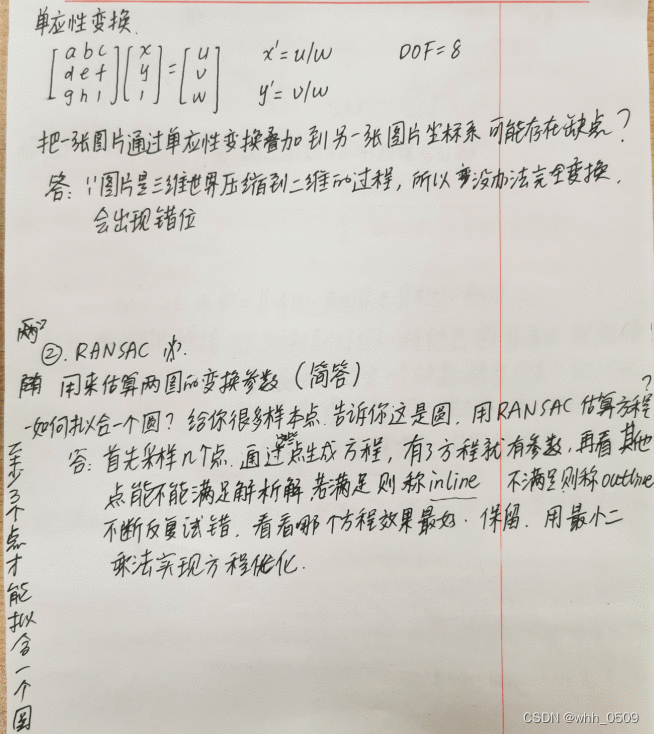 单应性变换.
[a b c [x [u x'=u/w DOF=8
d e f y = v
g h 1] 1] w] y'=v/w
把一张图片通过单应性变换叠加到另一张图片坐标系可能存在缺点？
答：图片是三维世界压缩到二维的过程，所以没办法完全变换.
会出现错位
②. RANSAC
用来估算两图的变换参数（简答）
-如何拟合一个圆？给你很多样本点.告诉你这是圆.用RANSAC估算方程?
答：首先采样几个点.通过这些点生成方程，有了方程就有参数，再看其他
点能不能满足解析解.若满足则称inline 不满足则称outline
不断反复试错.看看哪个方程效果最好.保留.用最小二
乘法实现方程优化.
至少3个点才能拟合一个圆
CSDN @whh_0509